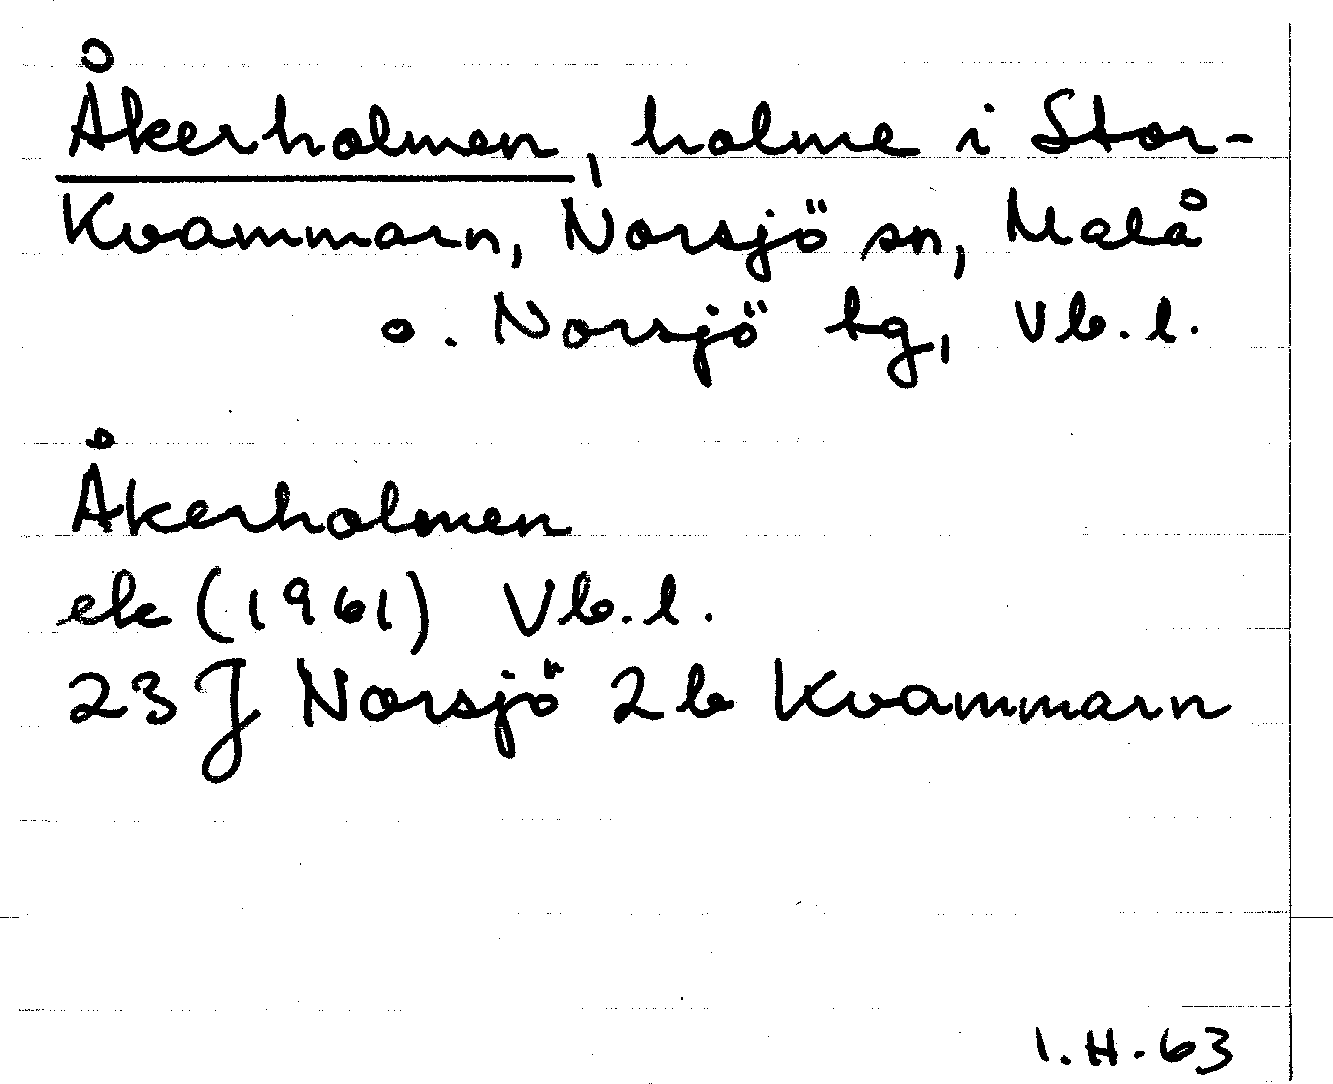 Åkerholmen, holme i Stor-
Kvammarn, Norsjö sn, Malå
o. Norsjö tg, Vb. l.
Åkerholmen
ek (1961) Vb. l.
23 J Norsjö 2 b Kvammarn
I. H. 63